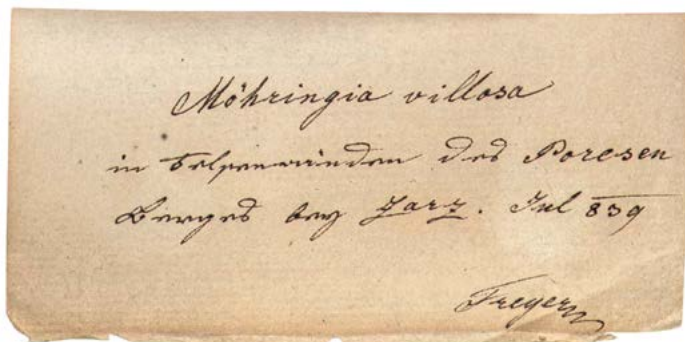 Möhringia villosa
in Felsenwänden des Poresen
Berges bey Zarz. Jul 839
Freyer